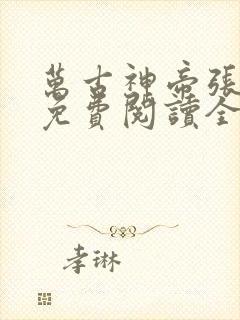 萬古神帝張
免費閱讀全
李琳